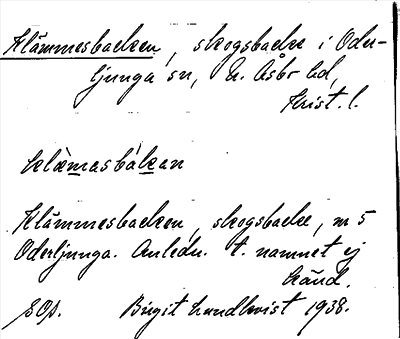 Klämmesbacken, skogsbacke i Oder-
ljunga sn, N. Åsbo hd,
Krist. l.
klèmasbàkan
Klämmesbacken, skogsbacke, nr 5
Oderljunga. Anledn. t. namnet ej
känd.
SOA. Birgit Lundkvist 1938.